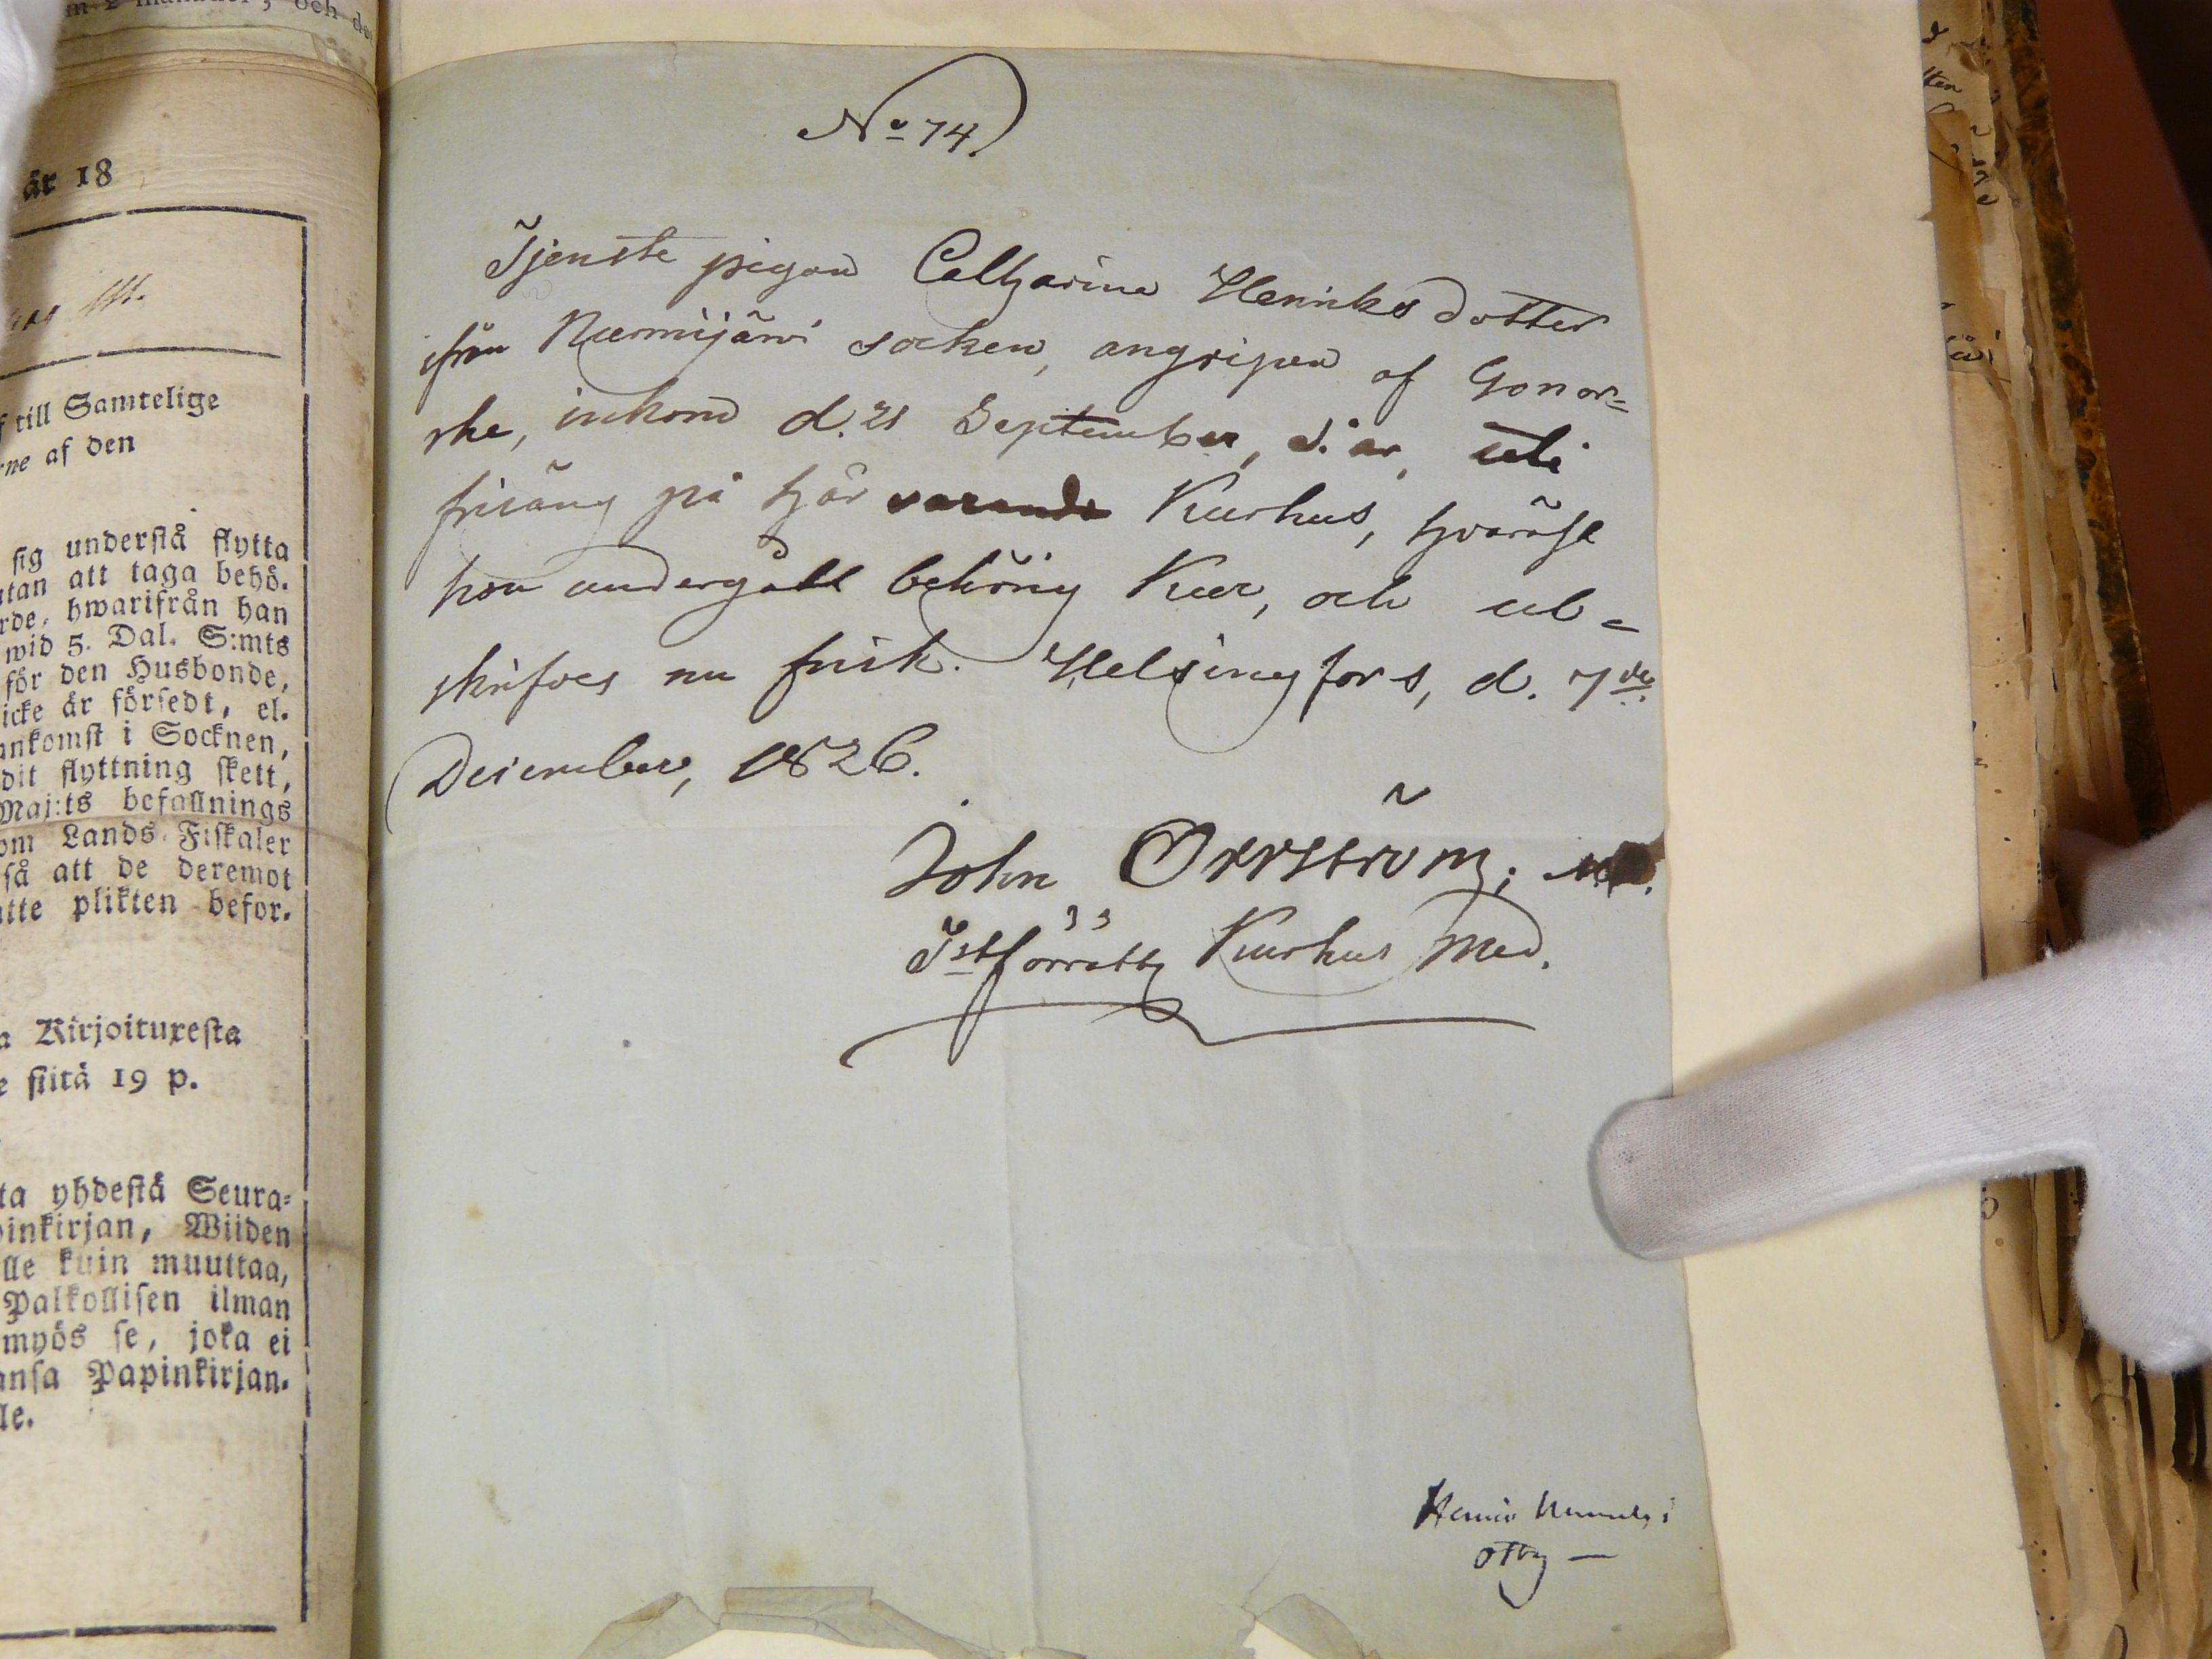 m 2 månader, och der
år 18
till Samtelige
rne af den
sig understå flytta
utan att taga behö-
rde, hwarifrån han
wid 5. Dal. S:mts
för den Husbonde,
icke är försedt, el-
ankomst i Socknen,
dit flyttning skett,
Maj:ts befallnings
om Lands-Fiskaler
så att de deremot
atte plikten befor-
a Kirjoituxesta
e siitä 19 p.
ta yhdestä Seura-
pinkirjan, Wiiden
lle kuin muuttaa,
Palkollisen ilman
myös se, joka ei
ansa Papinkirjan-
le.
No 74.
Tjenste pigan Catharina Henriks dotter
ifrån Nurmijärvi socken, angripen af Gonor=
rhe, inkom d. 21 September, d. år, uti
frisäng på här varande Kurhus, hvaräst
hon undergått behörig Kur, och ut=
skrifves nu frisk. Helsingfors, d. 7de
December, 1826.
John Orrström;
T. förrättg Kurhus Med.